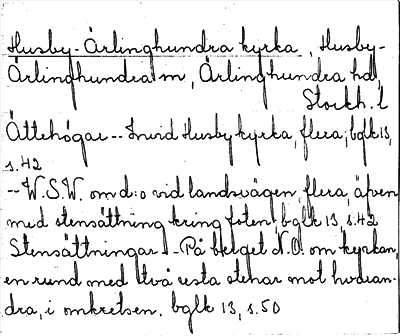 Husby-Ärlinghundra kyrka, Husby-
Ärlinghundra sn, Ärlinghundra hd,
Stockh. l
Ättehögar -- Invid Husby kyrka, flera; bglk 13,
s. 42
-- W.S.W. om d:o vid landsvägen, flera, äfven
med stensättning kring foten; bglk 13, s. 42
Stensättningar -- På berget N.O. om kyrkan,
en rund med två resta stenar mot hvaran-
dra, i omkretsen. bglk 13, s. 50